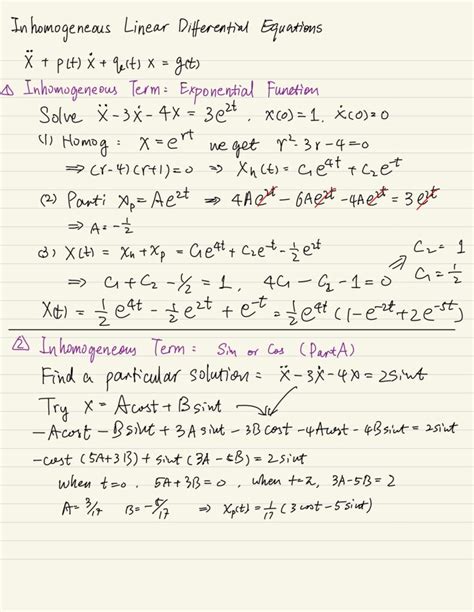 Inhomogeneous Linear Differential Equations
ẍ + p(t) ẋ + q(t) x = g(t)
① Inhomogeneous Term: Exponential Function
Solve ẍ - 3ẋ - 4x = 3e^{2t}, x(0) = 1, ẋ(0) = 0
(1) Homog: x = e^{rt} we get r² - 3r - 4 = 0
⇒ (r-4)(r+1) = 0 ⇒ X_h(t) = C₁e^{4t} + C₂e^{-t}
(2) Parti X_p = Ae^{2t} ⇒ 4Ae^{2t} - 6Ae^{2t} - 4Ae^{2t} = 3e^{2t}
⇒ A = -1/2
(3) X(t) = X_h + X_p = C₁e^{4t} + C₂e^{-t} - 1/2 e^{2t}
⇒ C₁ + C₂ - 1/2 = 1, 4C₁ - C₂ - 1 = 0 ⇒ C₂ = 1 C₁ = 1/2
X(t) = 1/2 e^{4t} - 1/2 e^{2t} + e^{-t} = 1/2 e^{4t} (1 - e^{-2t} + 2e^{-5t})
② Inhomogeneous Term: Sin or Cos (Part A)
Find a particular solution: ẍ - 3ẋ - 4x = 2sint
Try X = Acost + Bsint
-Acost - Bsint + 3Asint - 3Bcost - 4Acost - 4Bsint = 2sint
-cost (5A+3B) + sint (3A - 5B) = 2sint
when t=0, 5A + 3B = 0, when t=π/2, 3A - 5B = 2
A = 3/17 B = -5/17 ⇒ X_p(t) = 1/17 (3cost - 5sint)